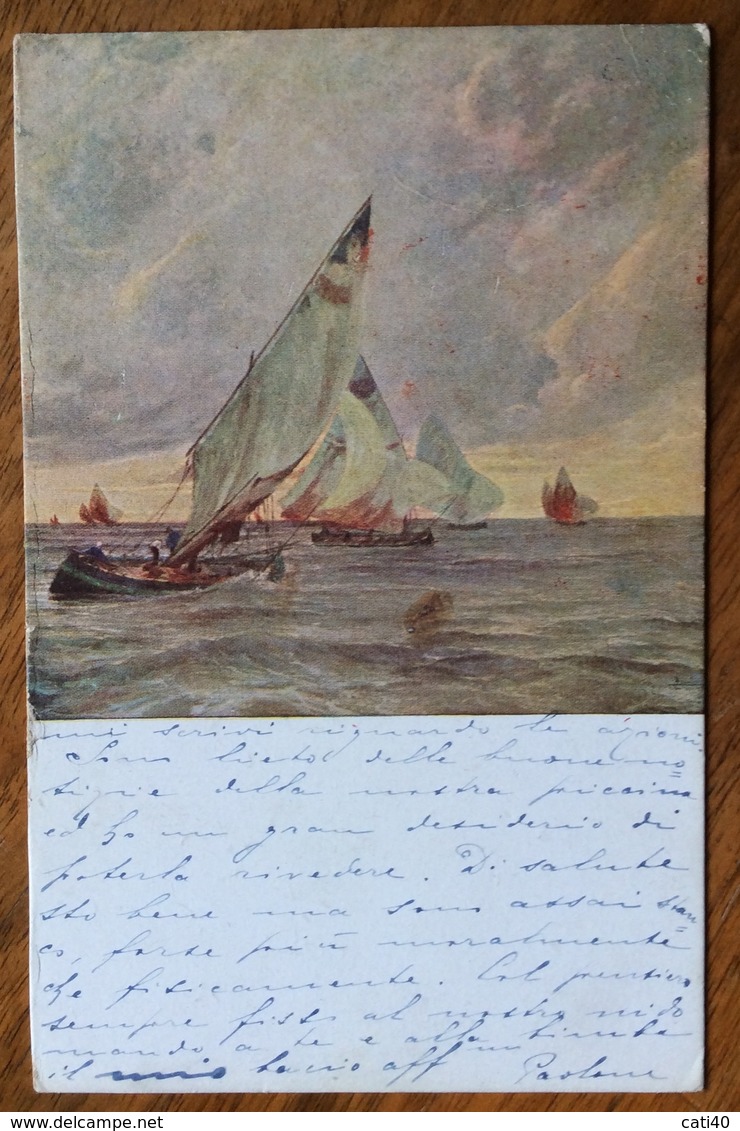 mi scrivi riguardo le azioni.
Sono lieto delle buone no=
tizie della nostra piccina
ed ho un gran desiderio di
poterla rivedere. Di salute
sto bene ma sono assai stan=
co, forse più moralmente
che fisicamente. Col pensiero
sempre fisso al nostro nido
mando a te e alla bimba
il mio bacio aff um Paolone
cati40